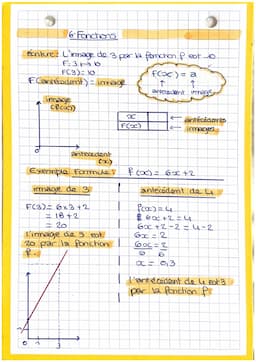 6-Fonctions
Ecriture: L'image de 3 par la fonction f est 10
F: 3 ↦ 10
F(3)= 10
F(antécédent) = image
F(x) = a
antécédent image
image
(F(x))
antécédent
(x)
x
F(x)
antécédents
images
Exemple Formule: f(x) = 6x+2
image de 3
F(3)= 6x3+2
= 18+2
= 20
l'image de 3 est
20 par la fonction
f.
0 1 3
antécédent de 4
f(x)= 4
6x+2=4
6x+2-2=4-2
6x = 2
6x = 2
6 6
x = 0,3
L'antécédent de 4 est 3
par la fonction f.